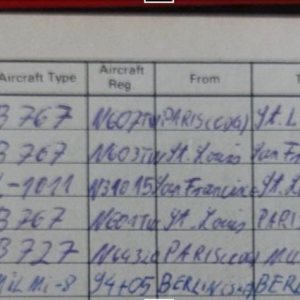 Aircraft Type Aircraft Reg. From T
B 767 N607TW PARIS(CDG) St. L
B 767 N603TW St. Louis San Fr
L-1011 N31015 San Francisco St.
B 767 N601TW St. Louis PARI
B 727 PARIS(CDG)
Mil Mi-8 94+05 BERLIN BER